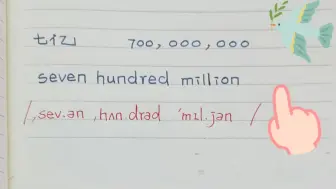 七亿 700,000,000
seven hundred million
/ˌsev.ən ˌhʌn.drəd ˈmɪl.jən /